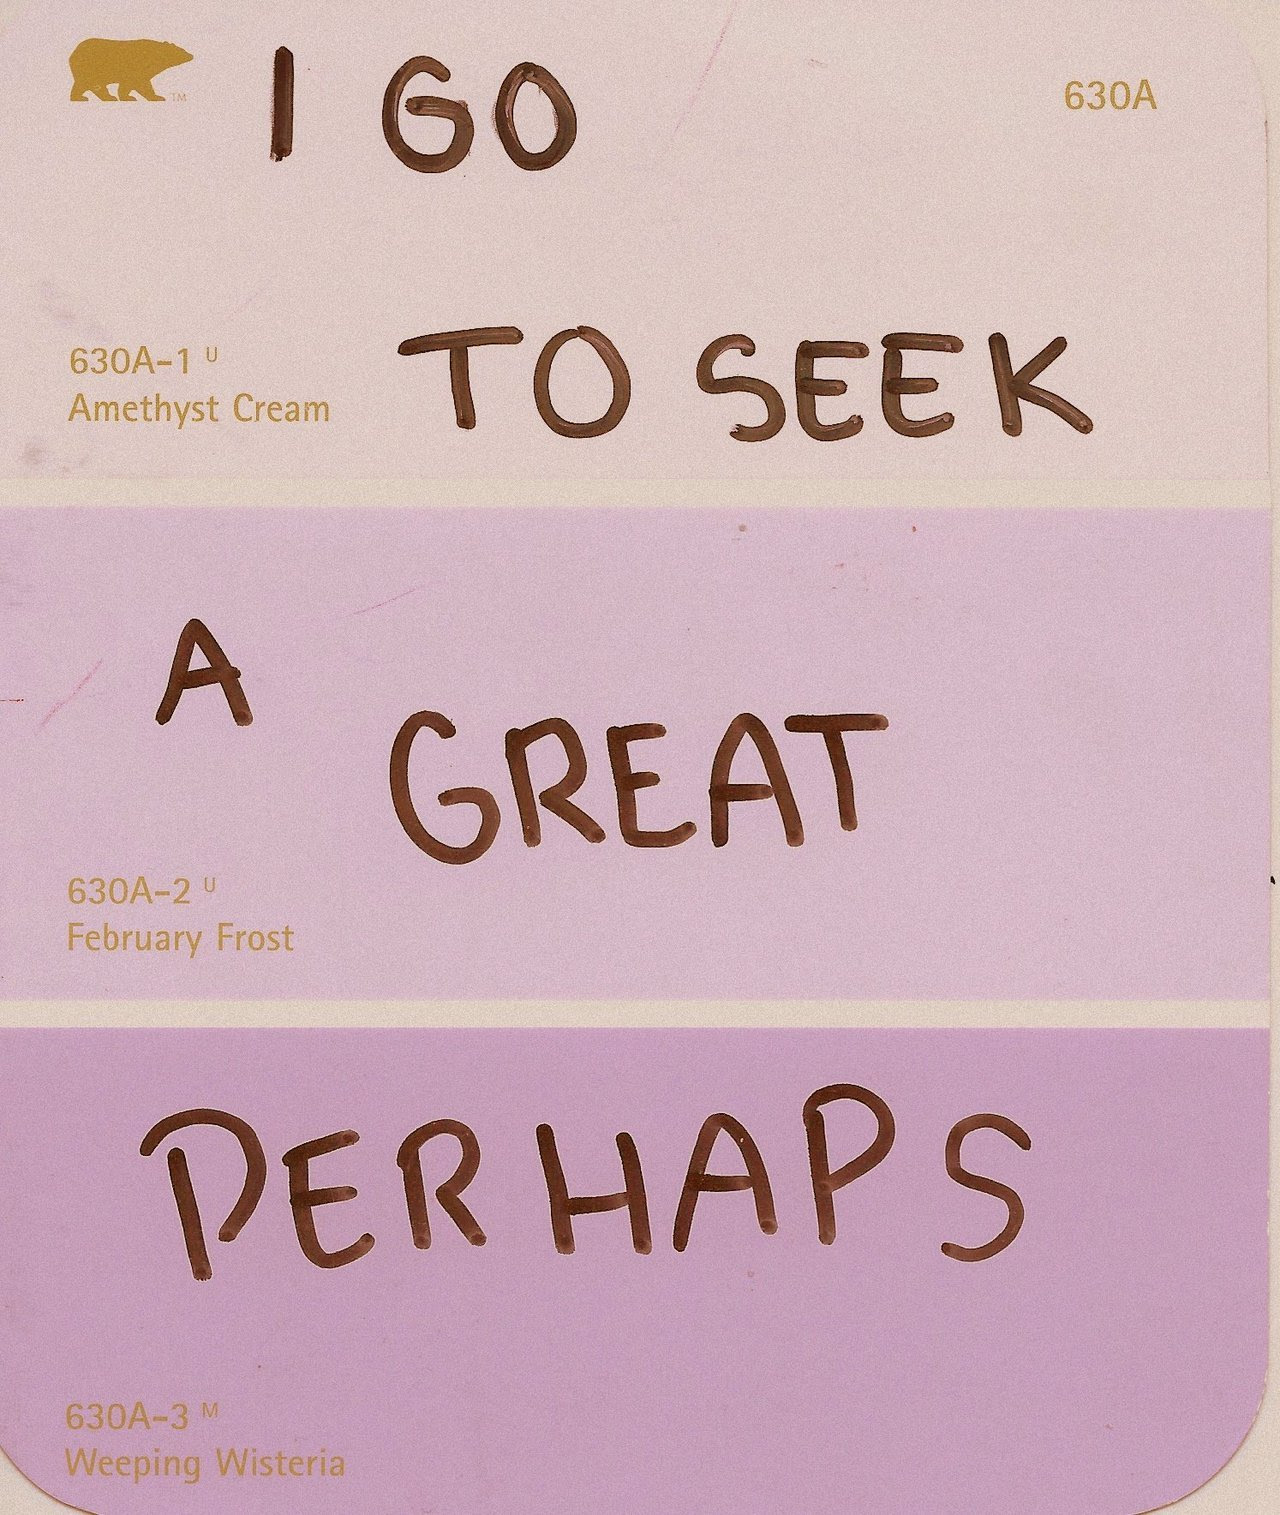 I GO
630A
TO SEEK
630A-1 U
Amethyst Cream
A
GREAT
630A-2 U
February Frost
PERHAPS
630A-3 M
Weeping Wisteria
TM